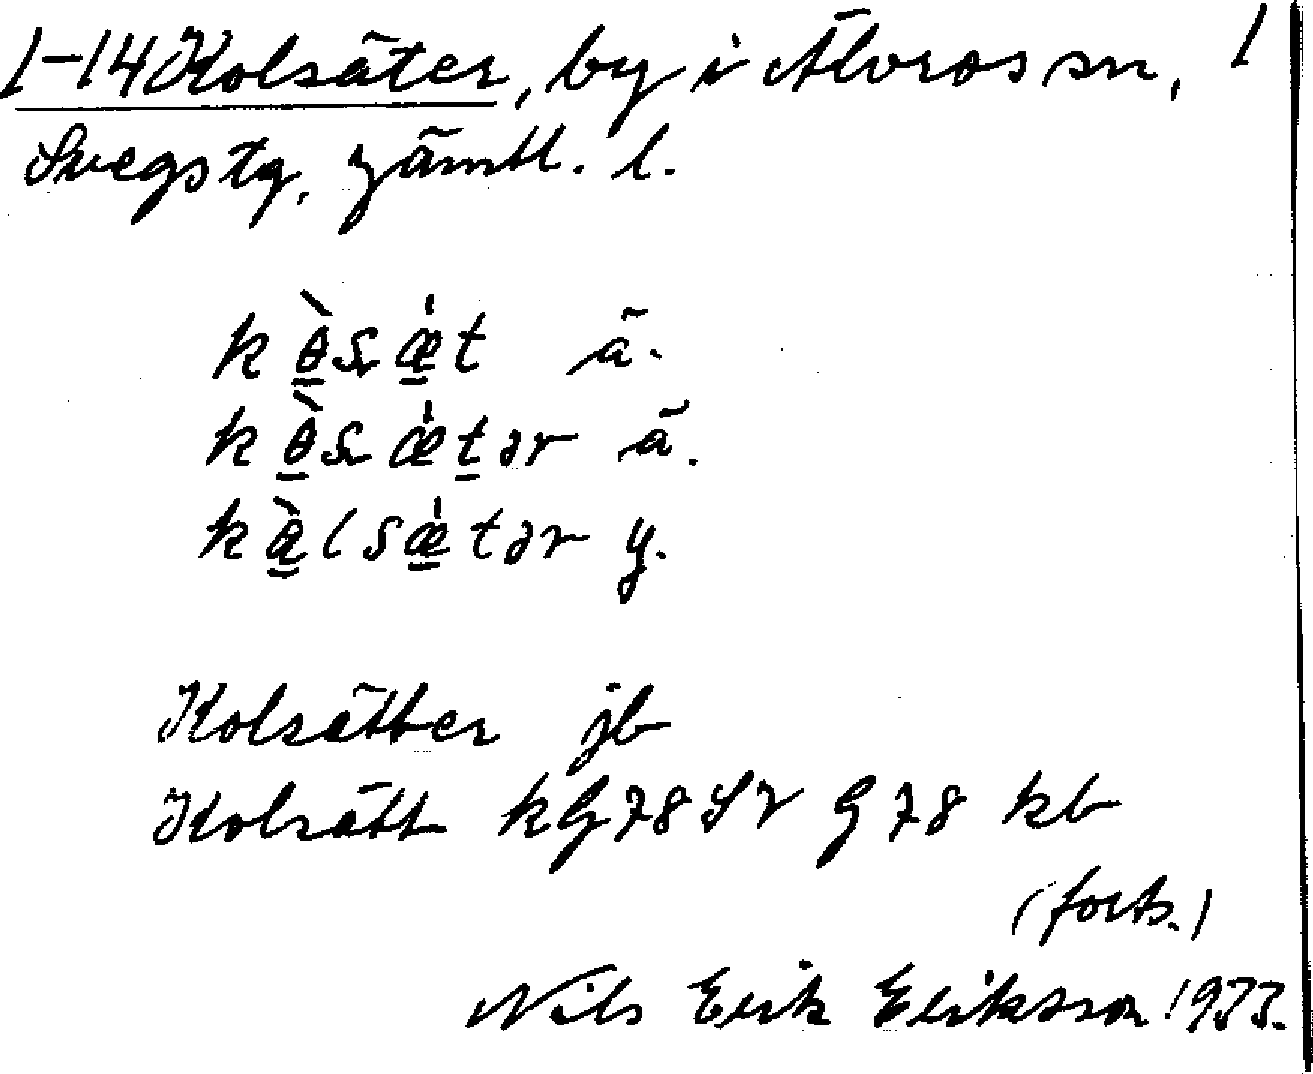 1-14 Kolsäter, by i Älvros sn, 1
Svegs tg, Jämtl. l.
kɵ̀sǽt ä.
kɵ̀sǽtər ä.
kæ̀lsǽtər y.
Kolsätter jb
Kolsätt kG 78 G 78 kb
(forts.)
Nils Erik Eriksson